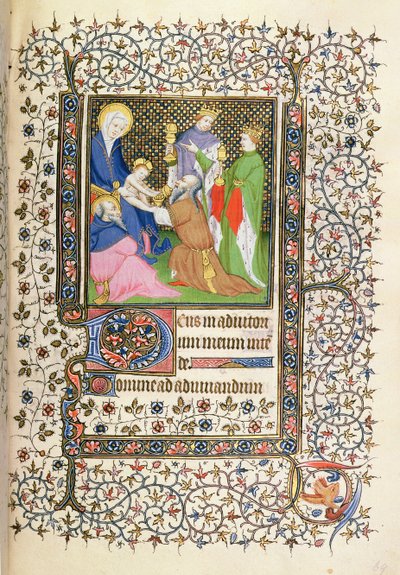 Deus in adiutor
ium meum intē
de
Domine ad adiuuandum